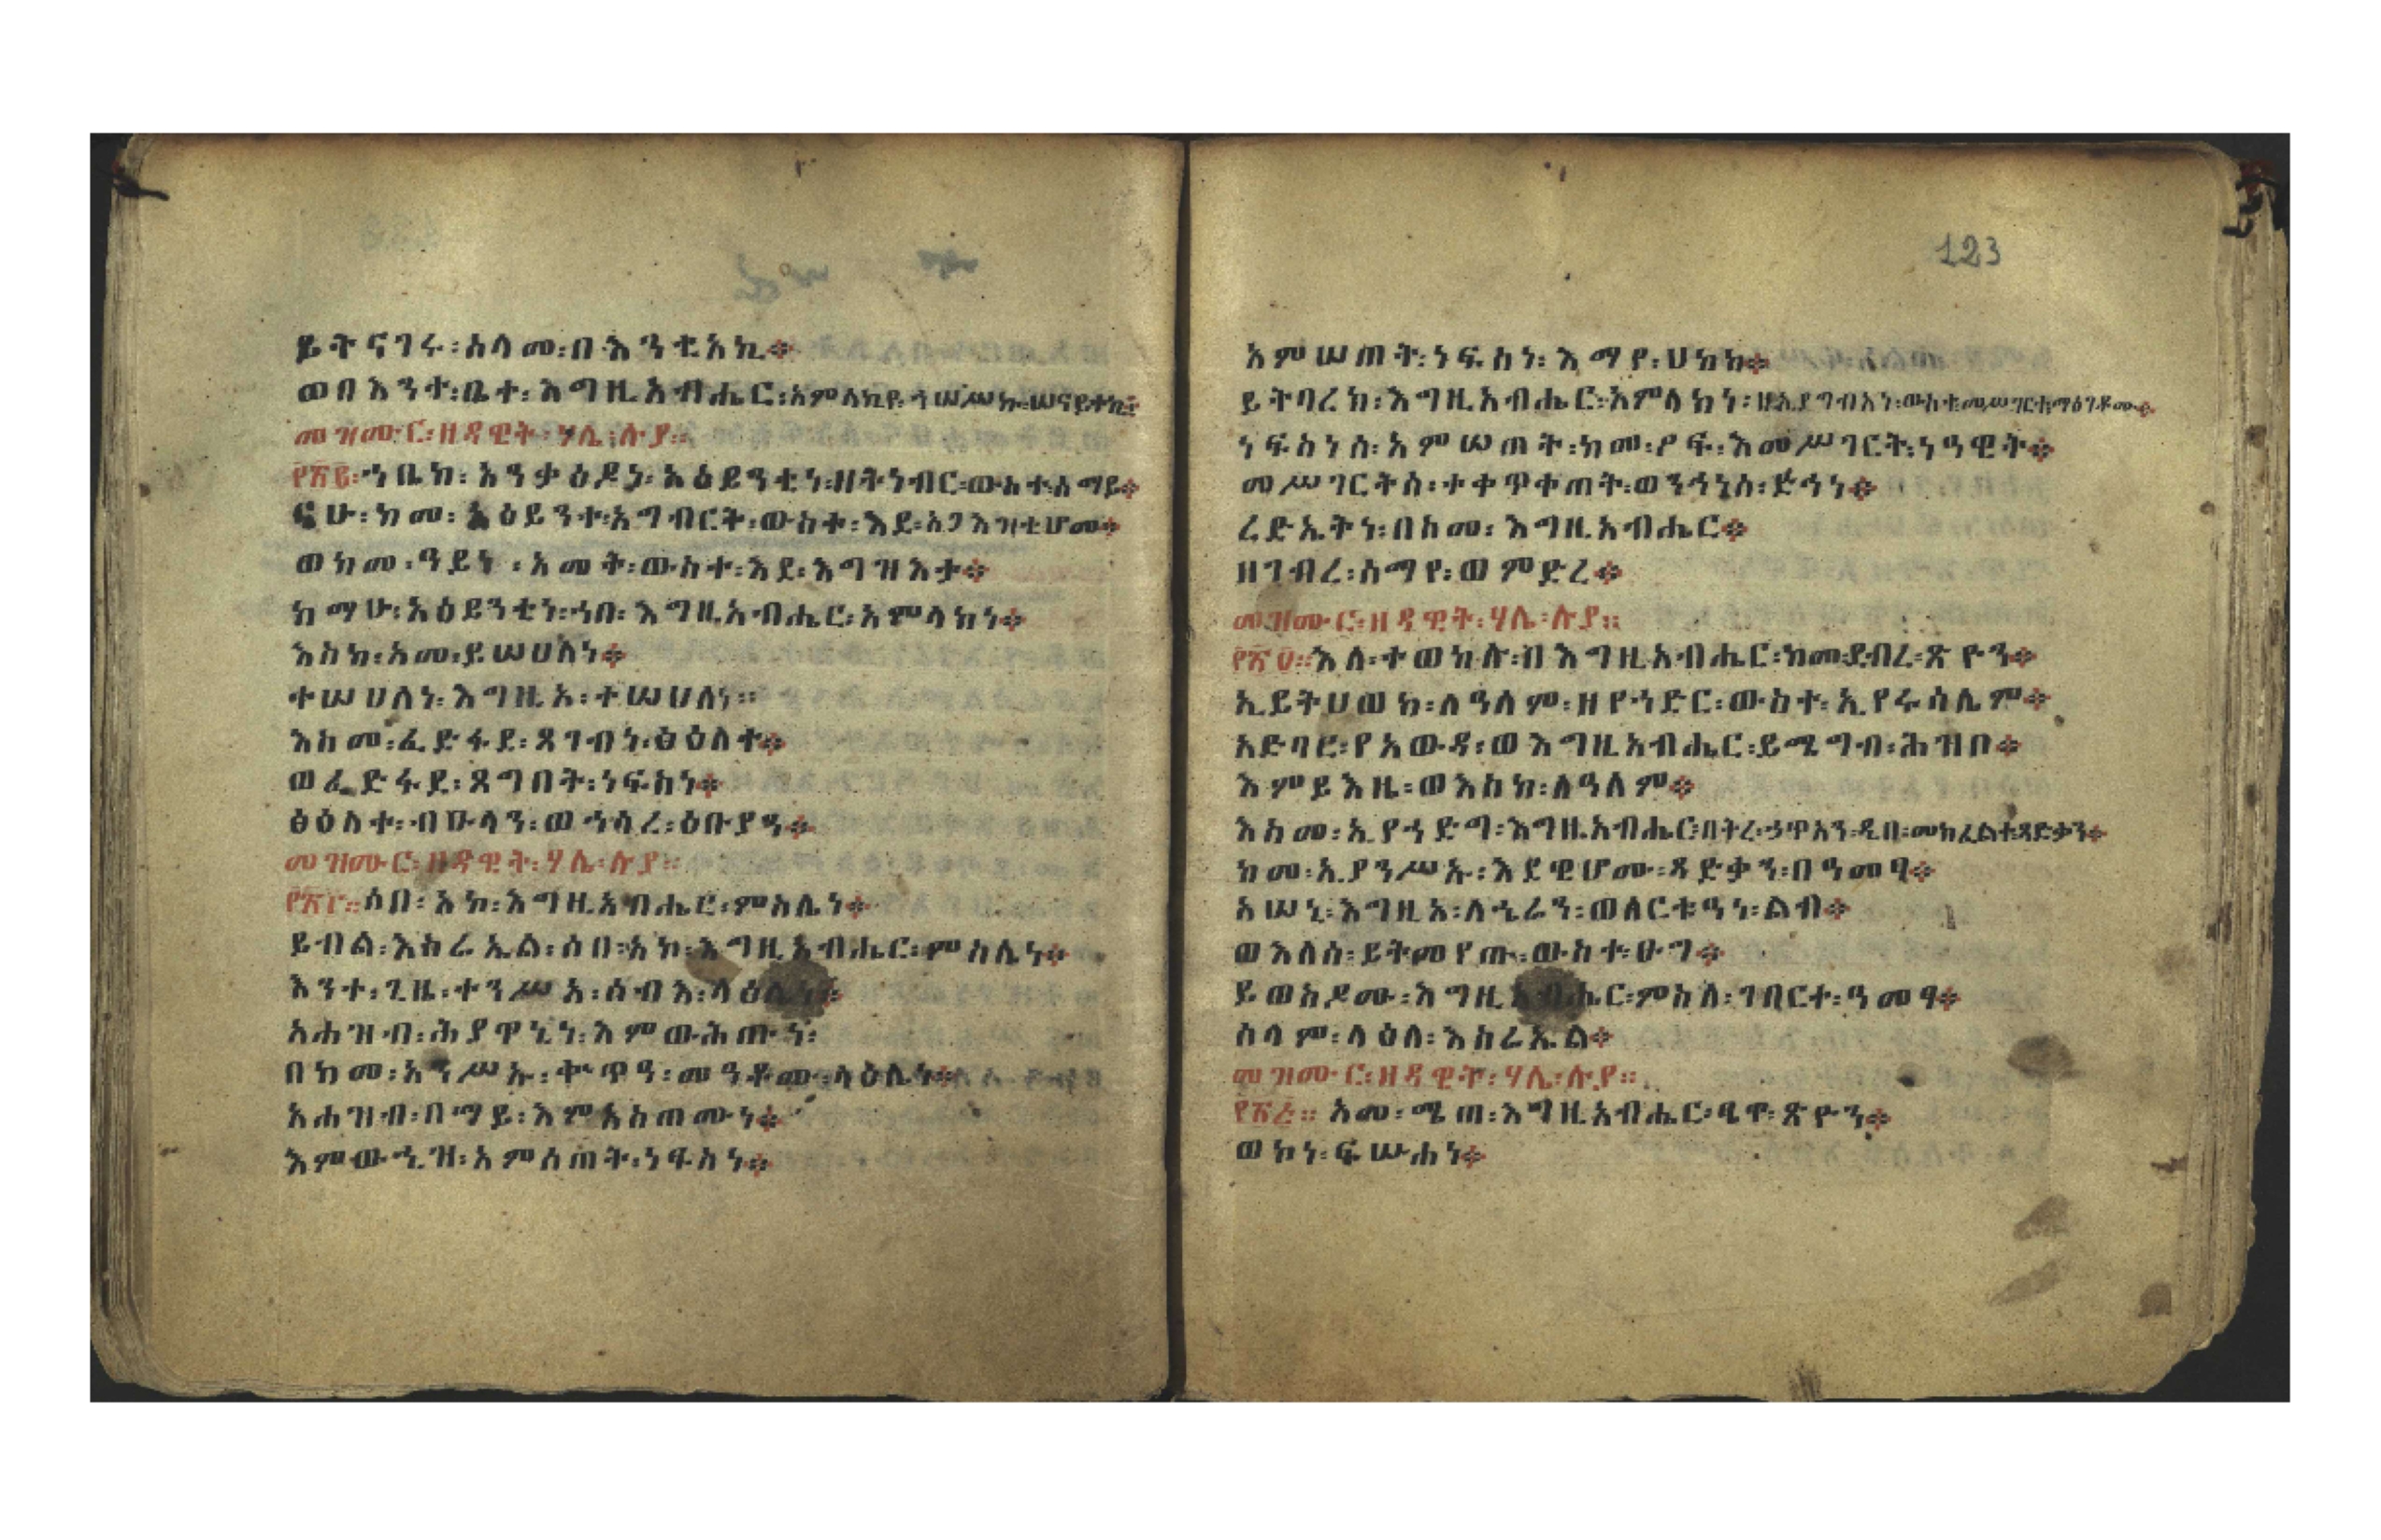 ይትናገሩ፡ሰላመ፡በእንቲአኪ።
ወበእንተ፡ቤተ፡እግዚአብሔር፡አምላኪየ፡ኀሠሥኩ፡ሠናይተኪ።
መዝሙር፡ዘዳዊት፡ሃሌ፡ሉያ።
፻፳፪፡ኀቤከ፡አንቃዕዶነ፡አዕይንቲነ፡ዘትነብር፡ውስተ፡ሰማይ።
ናሁ፡ከመ፡አዕይንተ፡አግብርት፡ውስተ፡እደ፡አጋእዝቲሆሙ።
ወከመ፡ዓይነ፡አመት፡ውስተ፡እደ፡እግዝእታ።
ከማሁ፡አዕይንቲነ፡ኀበ፡እግዚአብሔር፡አምላክነ።
እስከ፡አመ፡ይሠሀለነ።
ተሠሀለነ፡እግዚአ፡ተሠሀለነ።
እስመ፡ፈድፋደ፡ጸገብነ፡ፅዕለተ።
ወፈድፋደ፡ጸግበት፡ነፍስነ።
ፅዕለተ፡ብዙኃን፡ወኀሳረ፡ዕቡያን።
መዝሙር፡ዘዳዊት፡ሃሌ፡ሉያ።
፻፳፫።ሶበ፡አኮ፡እግዚአብሔር፡ምስሌነ።
ይብል፡እስራኤል፡ሶበ፡አኮ፡እግዚአብሔር፡ምስሌነ።
እንተ፡ጊዜ፡ተንሥአ፡ሰብእ፡ላዕሌነ።
አሕዝብ፡ሕያዋኒነ፡እምውሕጡነ፡
በከመ፡አንሥኡ፡ቍጥዓ፡መዓቶሙ፡ላዕሌነ።
አሕዝብ፡በማይ፡እምአስጠሙነ።
እምውኂዝ፡አምሰጠት፡ነፍስነ።
123
አምሠጠት፡ነፍስነ፡እማየ፡ሀከክ።
ይትባረክ፡እግዚአብሔር፡አምላክነ፡ዘኢያግብአነ፡ውስተ፡መሥገርቱ፡ማዕገቶሙ።
ነፍስነሰ፡አምሠጠት፡ከመ፡ዖፍ፡እመሥገርት፡ነዓዊት።
መሥገርትሰ፡ተቀጥቀጠት፡ወንሕነሰ፡ድኅነ።
ረድኤትነ፡በስመ፡እግዚአብሔር።
ዘገብረ፡ሰማየ፡ወምድረ።
መዝሙር፡ዘዳዊት፡ሃሌ፡ሉያ።
፻፳፬።እለ፡ተወከሉ፡በእግዚአብሔር፡ከመ፡ደብረ፡ጽዮን።
ኢይትሀወክ፡ለዓለም፡ዘየኀድር፡ውስተ፡ኢየሩሳሌም።
አድባር፡የአውዳ፡ወእግዚአብሔር፡ይሜግብ፡ሕዝቦ።
እምይእዜ፡ወእስከ፡ለዓለም።
እስመ፡ኢየኀድግ፡እግዚአብሔር፡በትረ፡ኃጥአን፡ዲበ፡መክፈልተ፡ጻድቃን።
ከመ፡ኢያንሥኡ፡እደዊሆሙ፡ጻድቃን፡በዓመፃ።
አሠኒ፡እግዚአ፡ለኄራን፡ወለርቱዓነ፡ልብ።
ወእለሰ፡ይትመየጡ፡ውስተ፡ፁግ።
ይወስዶሙ፡እግዚአብሔር፡ምስለ፡ገበርተ፡ዓመፃ።
ሰላም፡ላዕለ፡እስራኤል።
መዝሙር፡ዘዳዊት፡ሃሌ፡ሉያ።
፻፳፭።አመ፡ሜጠ፡እግዚአብሔር፡ፂዋ፡ጽዮን።
ወኮነ፡ፍሡሐነ።